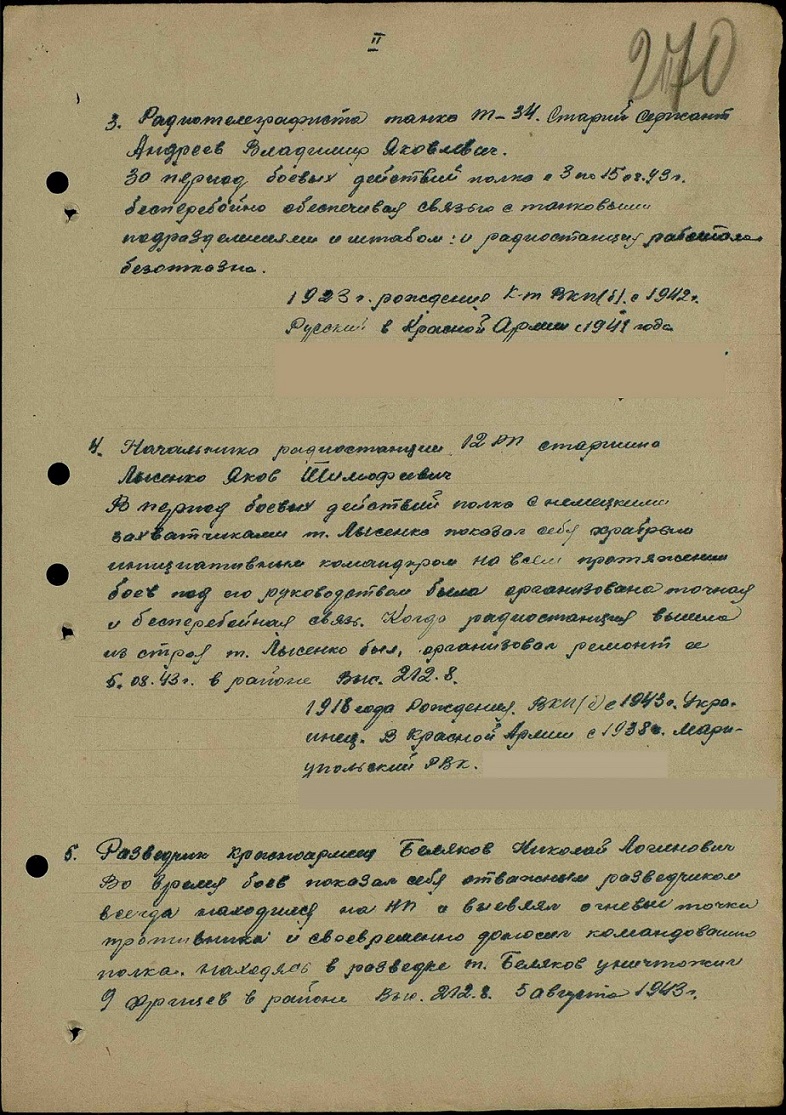 II
270
3. Радиотелеграфиста танка Т-34. Старший Сержант
Андреев Владимир Яковлевич.
За период боевых действий полка с 3 по 15.08.43 г.
бесперебойно обеспечивал связью с танковыми
подразделениями и штабом: и радиостанция работала
безотказно.
1923 г. рождения К-т ВКП(б). с 1942 г.
Русский в Красной Армии с 1941 года
4. Начальника радиостанции 12 старшина
Лысенко Яков Тимофеевич
В период боевых действий полка с немецкими
захватчиками т. Лысенко показал себя храбрым
инициативным командиром на всем протяжении
боев под его руководством была организована точная
и бесперебойная связь. Когда радиостанция вышла
из строя т. Лысенко был, организовал ремонт ее
5.08.43 г. в районе Выс. 212.8.
1918 года Рождения. ВКП(б) с 1943 г. Укра-
инец. В Красной Армии с 1938 г. Мари-
упольский РВК.
5. Разведчик Красноармеец Беляков Николай Логинович
Во время боев показал себя отважным разведчиком
всегда находился на НП и выевлял огневые точки
противника и своевременно доносил командованию
полка. находясь в разведке т. Беляков уничтожил
9 фрицев в районе Выс. 212.8. 5 августа 1943 г.